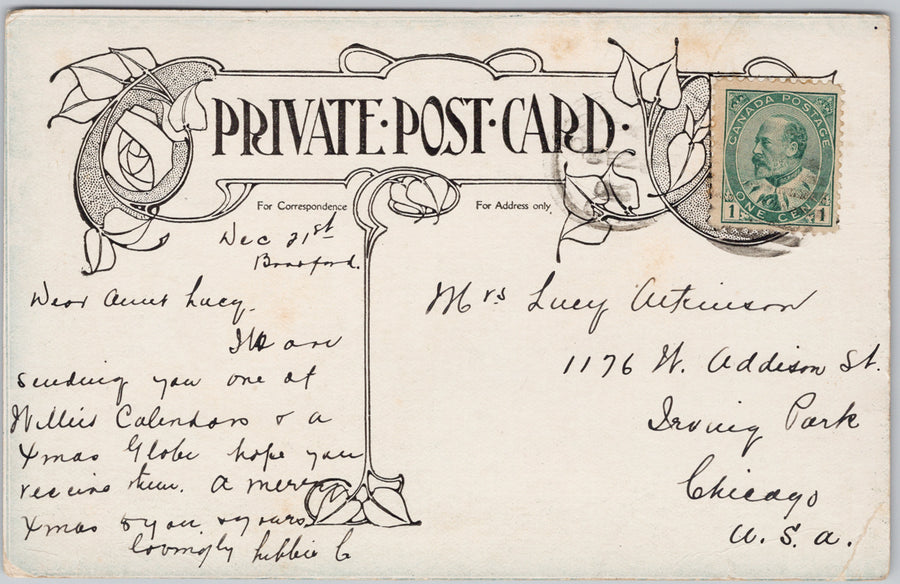 PRIVATE · POST · CARD ·
CANADA POSTAGE
1 ONE CENT 1
For Correspondence
For Address only
Dec 21st
Brantford.
Dear Aunt Lucy.
We are
sending you one of
Willie's Calendars & a
Xmas Globe hope you
receive them. A merry
Xmas to you & yours
lovingly Libbie C
Mrs Lucy Atkinson
1176 W. Addison St.
Irving Park
Chicago
U. S. A.